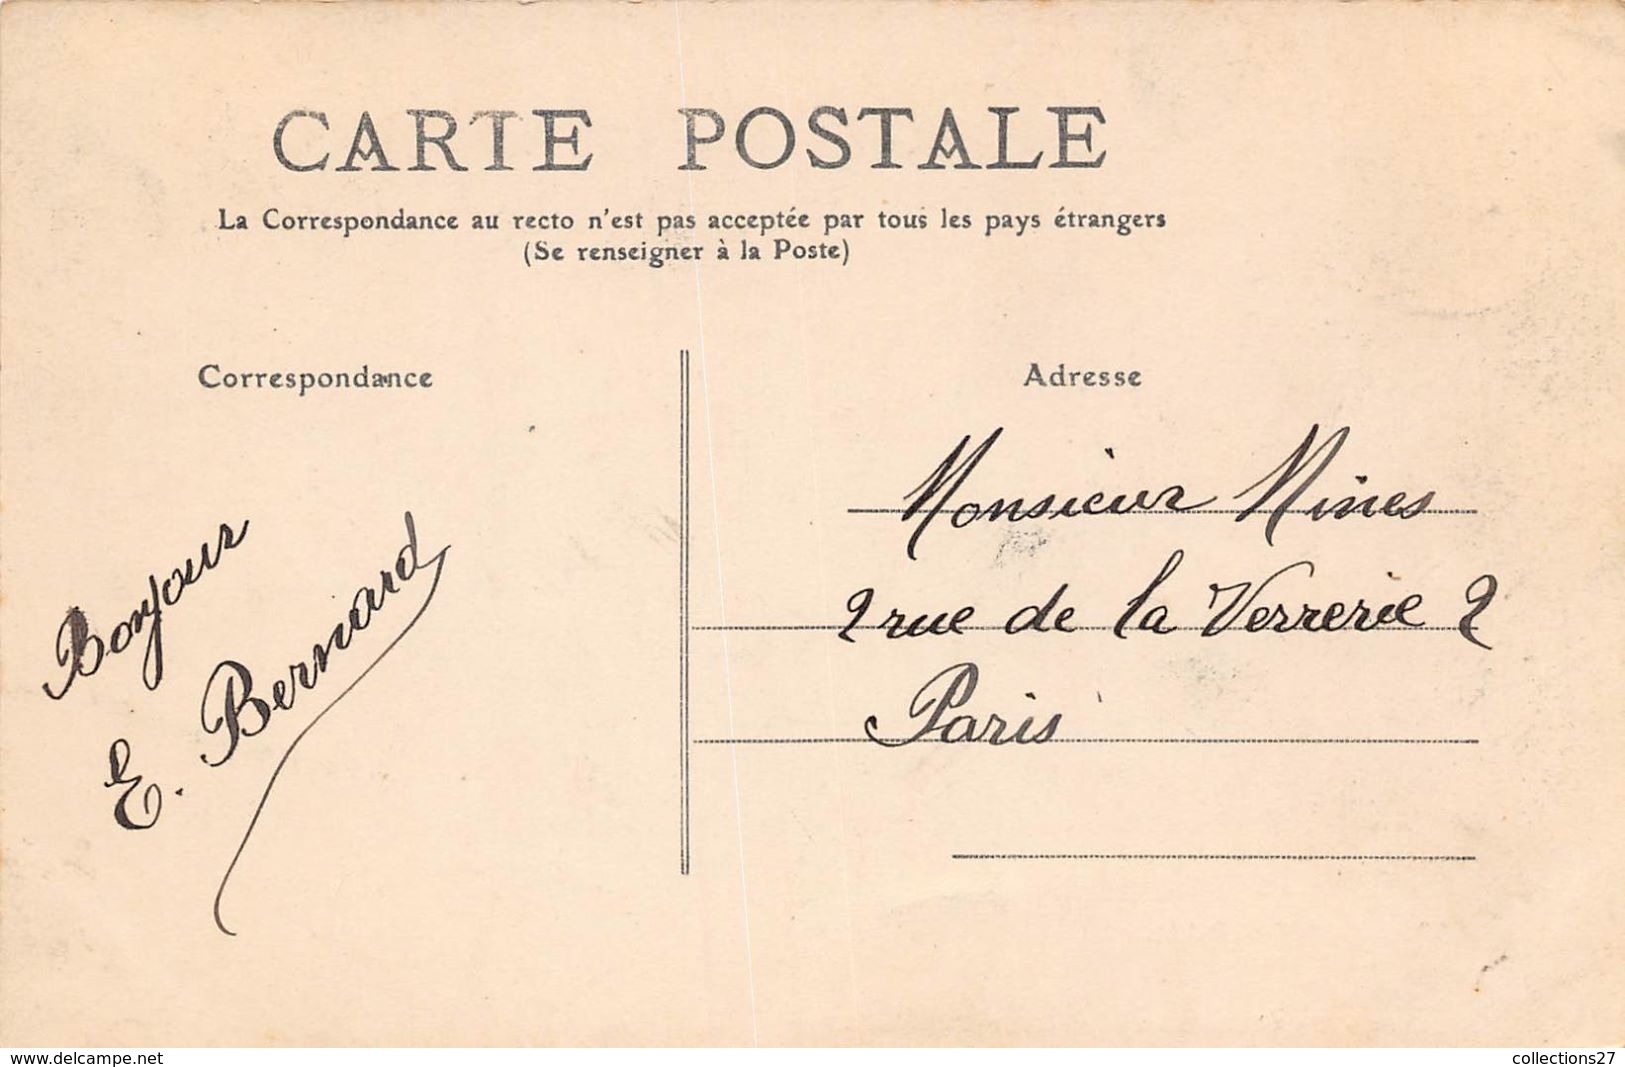 CARTE POSTALE
La Correspondance au recto n'est pas acceptée par tous les pays étrangers
(Se renseigner à la Poste)
Correspondance
Bonjour
E. Bernard
Adresse
Monsieur Mines
2 rue de la Verrerie 2
Paris
www.delcampe.net
collections27